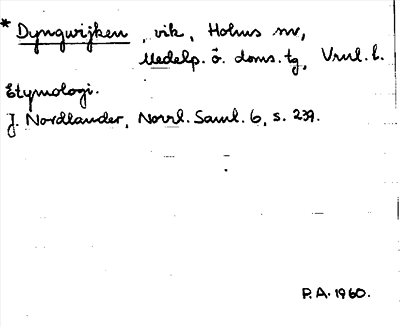 * Dyngwijken, vik, Holms sn,
Medelp. ö. doms. tg, Vrnl. l.
Etymologi.
J. Nordlander, Norrl. Saml. 6, s. 239.
P.A. 1960.